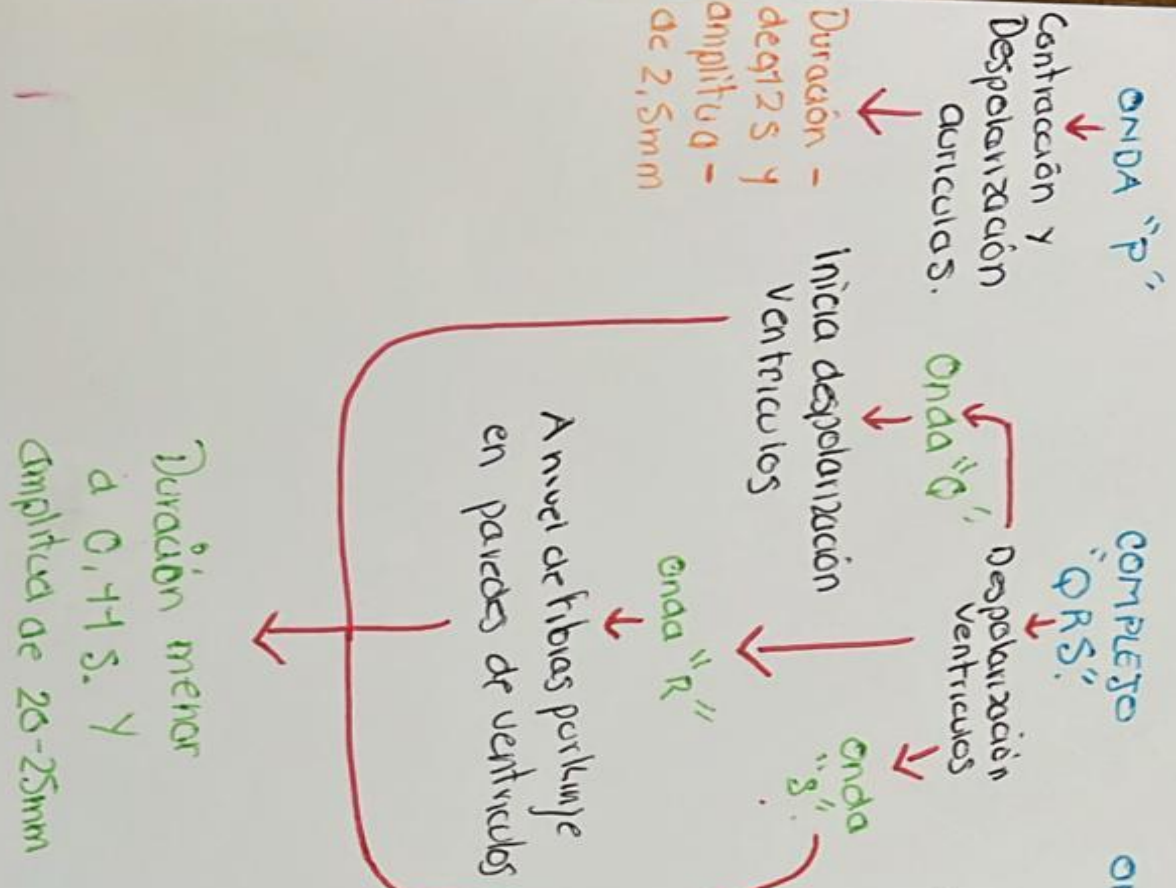 ONDA "P"
Contracción y
Despolarización
auriculas.
Duración -
de 0,12 s y
amplitud -
de 2,5mm
COMPLEJO
"QRS".
Despolarización
ventriculos
Onda "Q"
Inicia despolarización
ventriculos
Onda "R"
A nivel de fibras purkinje
en paredes de ventriculos
Onda
"S".
Duración menor
a 0,11 s. y
amplitud de 20-25mm